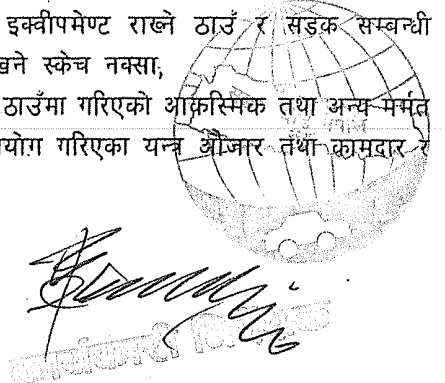 इक्वीपमेण्ट राख्ने ठाउँ र सडक सम्बन्धी
खने स्केच नक्सा,
ठाउँमा गरिएको आकस्मिक तथा अन्य मर्मत
योग गरिएका यन्त्र औजार तथा कामदार र
कार्यकारी निर्देशक